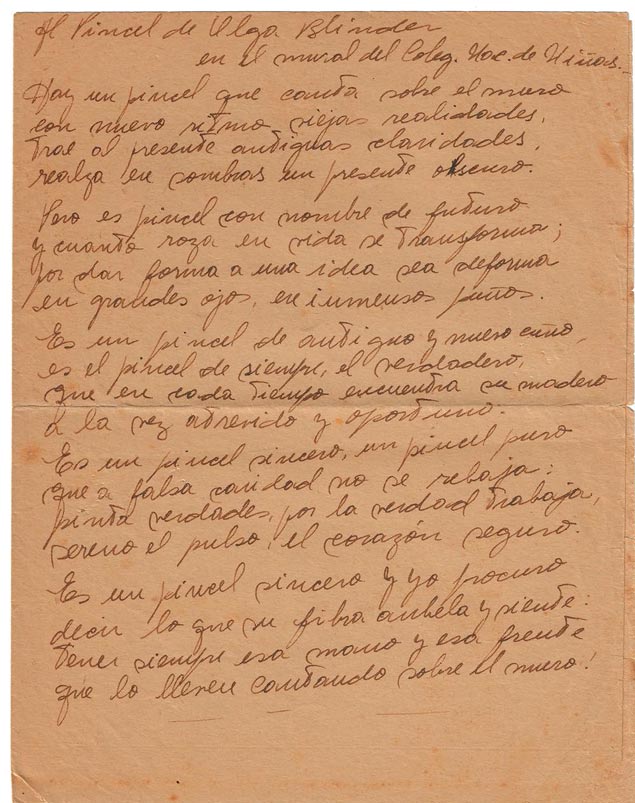 Al Pincel de Olga Blinder
en el mural del Coleg. Nac. de Niñas.-
Hay un pincel que canta sobre el muro
con nuevo ritmo viejas realidades,
trae al presente antiguas claridades,
realza en sombras un presente obscuro.
Pero es pincel con nombre de futuro
y cuanto roza en vida se transforma;
por dar forma a una idea sea deforma
en grandes ojos, en inmensos puños.
Es un pincel de antiguo y nuevo cuño,
es el pincel de siempre, el verdadero,
que en cada tiempo encuentra su madero
a la vez atrevido y oportuno.
Es un pincel sincero, un pincel puro
que a falsa caridad no se rebaja:
pinta verdades, por la verdad trabaja,
sereno el pulso, el corazón seguro.
Es un pincel sincero y yo procuro
decir lo que su fibra anhela y siente:
tener siempre esa mano y esa frente
que lo lleven cantando sobre el muro!